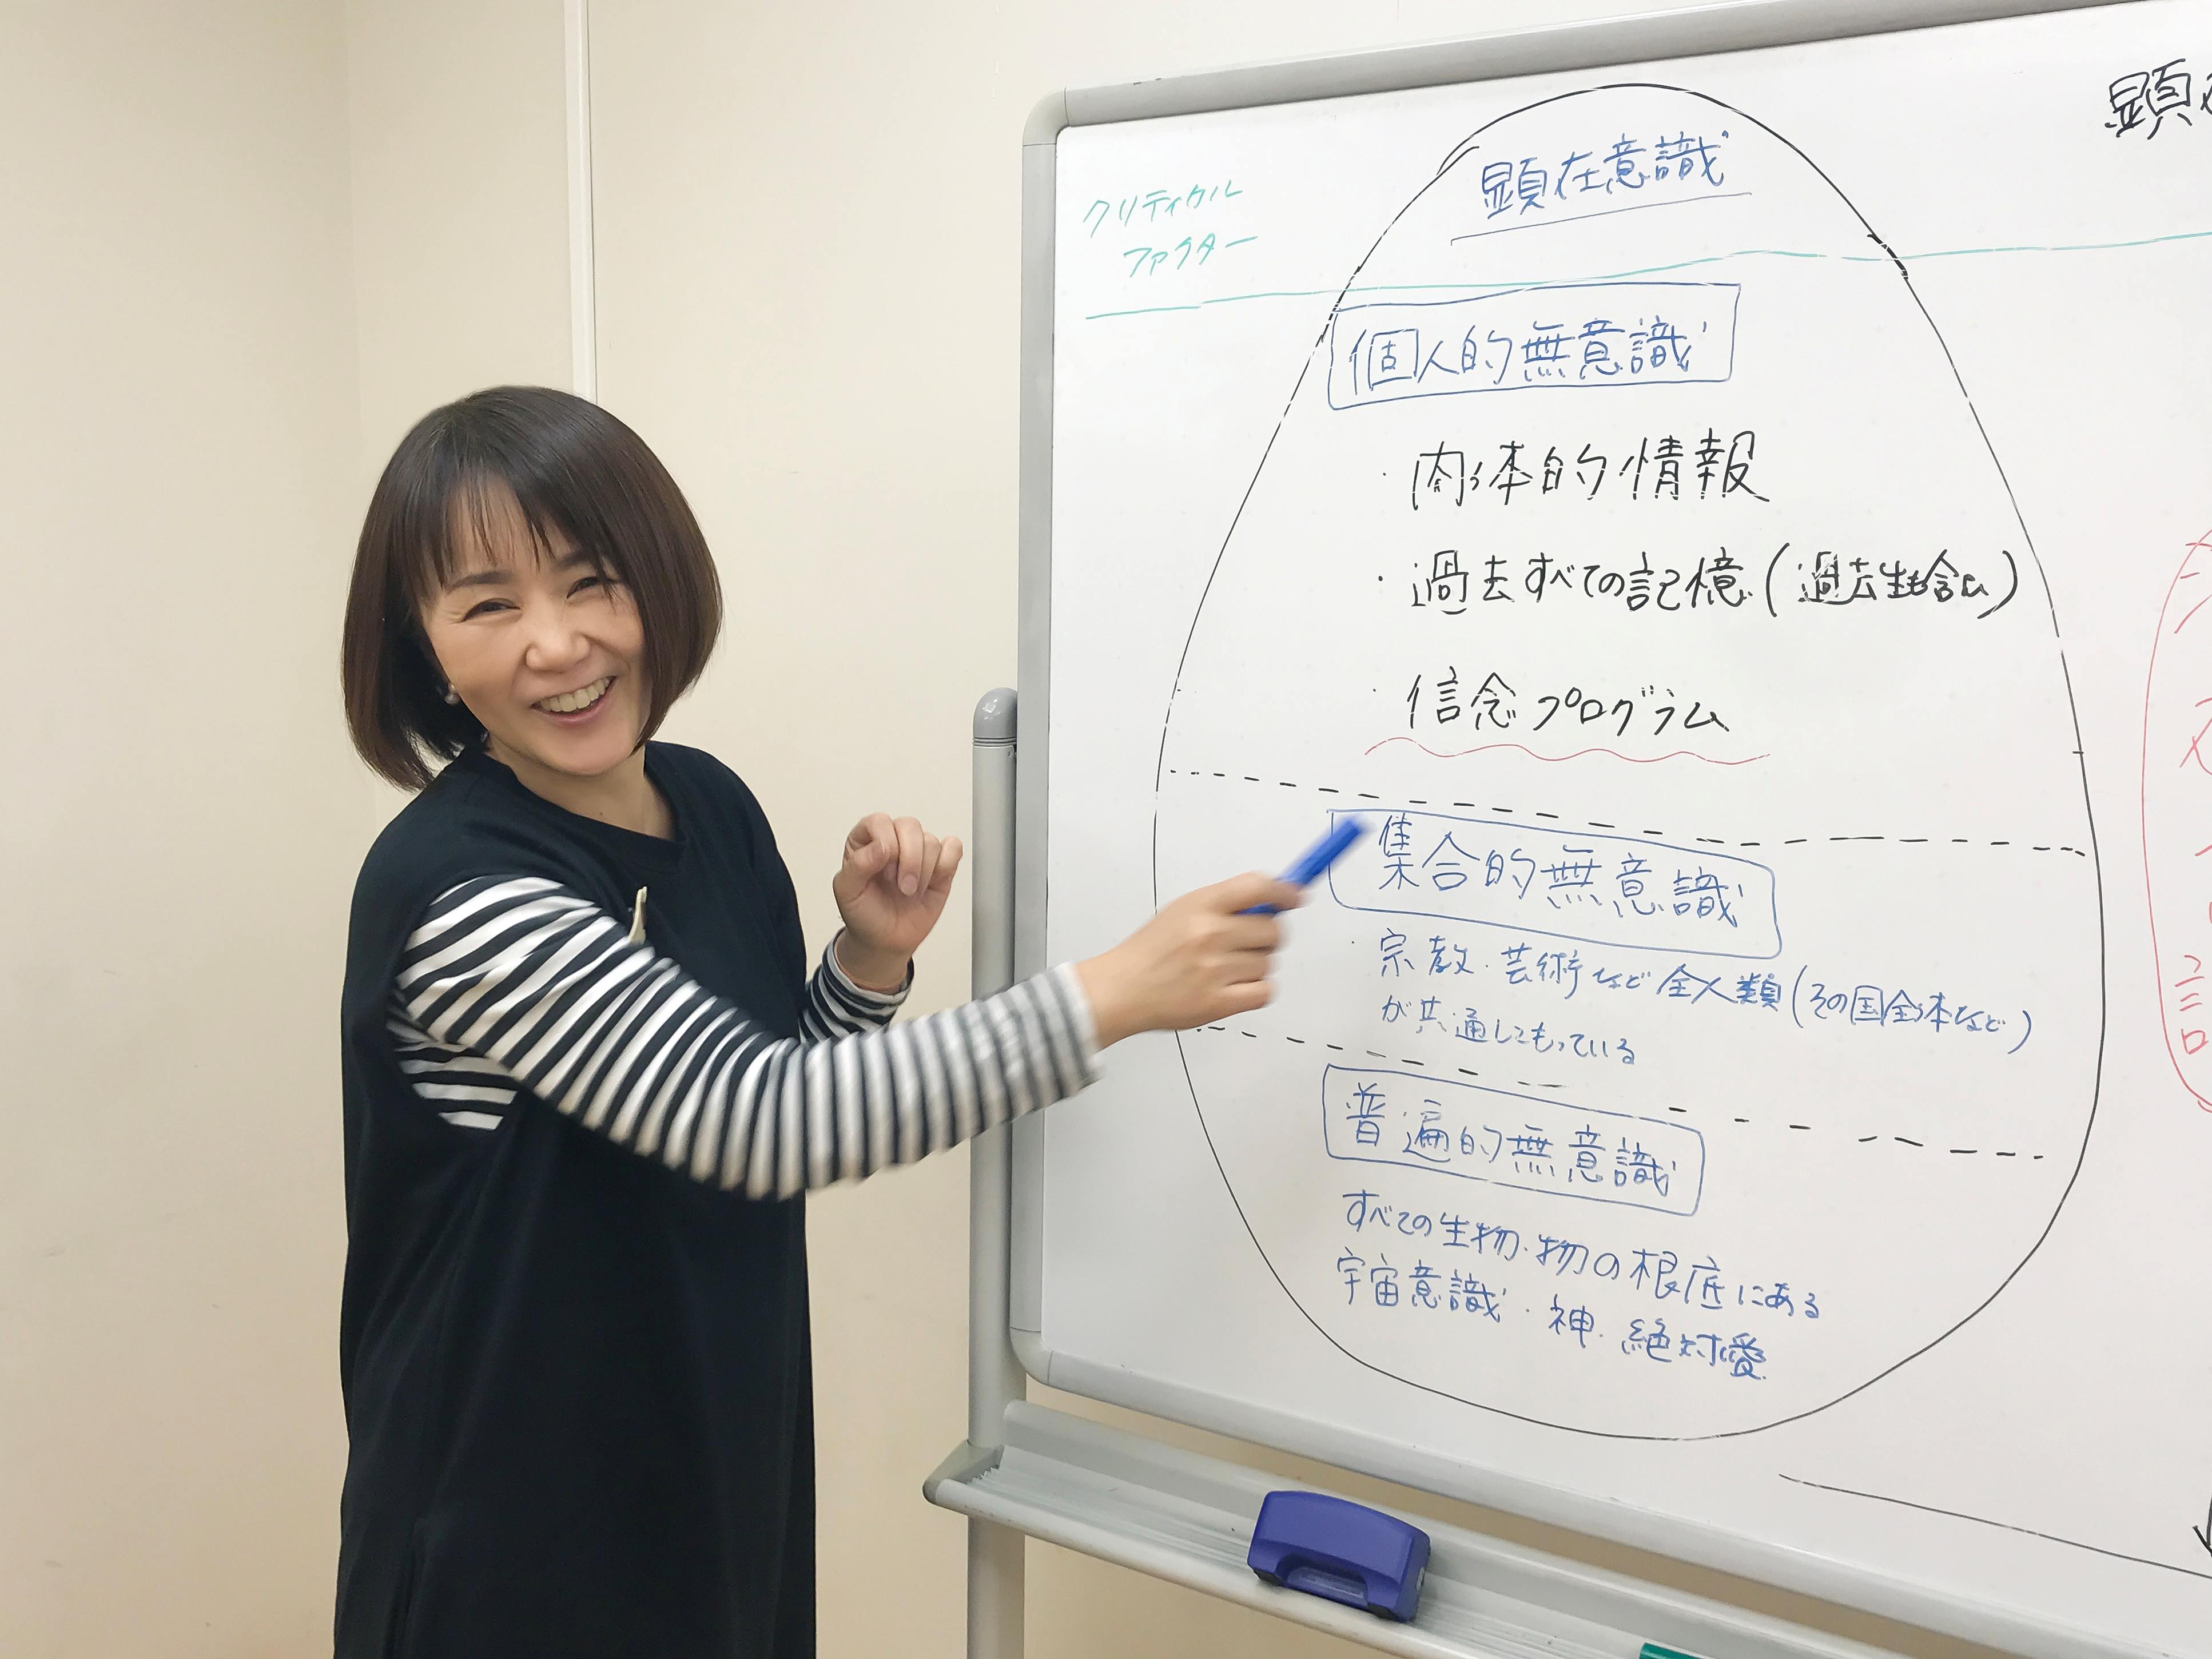 クリティカル
ファクター
顕在意識
個人的無意識
・肉体的情報
・過去すべての記憶(過去生も含む)
・信念プログラム
集合的無意識
・宗教・芸術など全人類(その国全体など)
が共通してもっている
普遍的無意識
すべての生物・物の根底にある
宇宙意識・神・絶対愛
顕